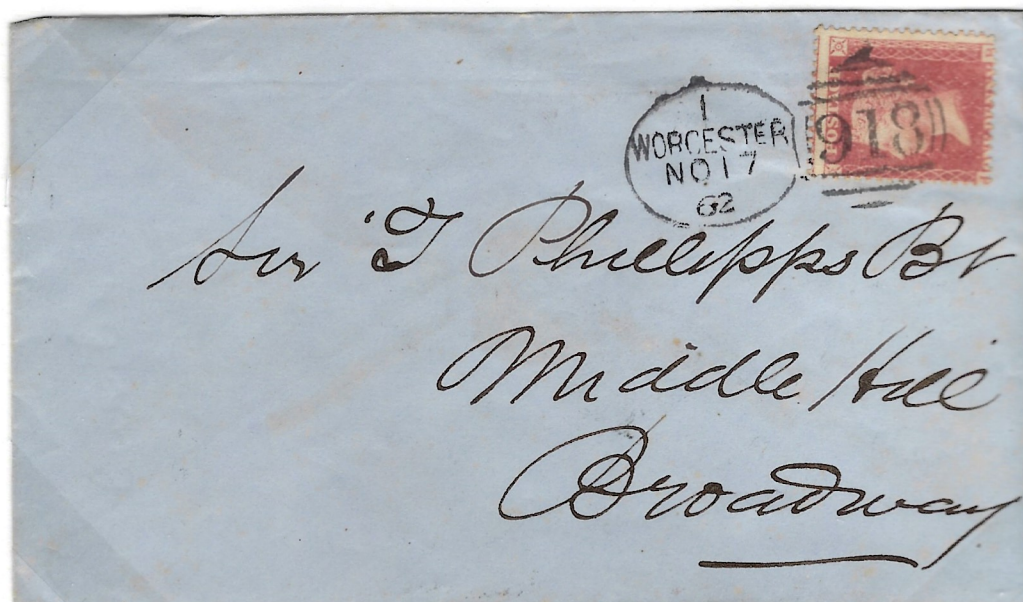 1
WORCESTER
NO 17
62
918
Sir T Phillipps Bt
Middle Hill
Broadway